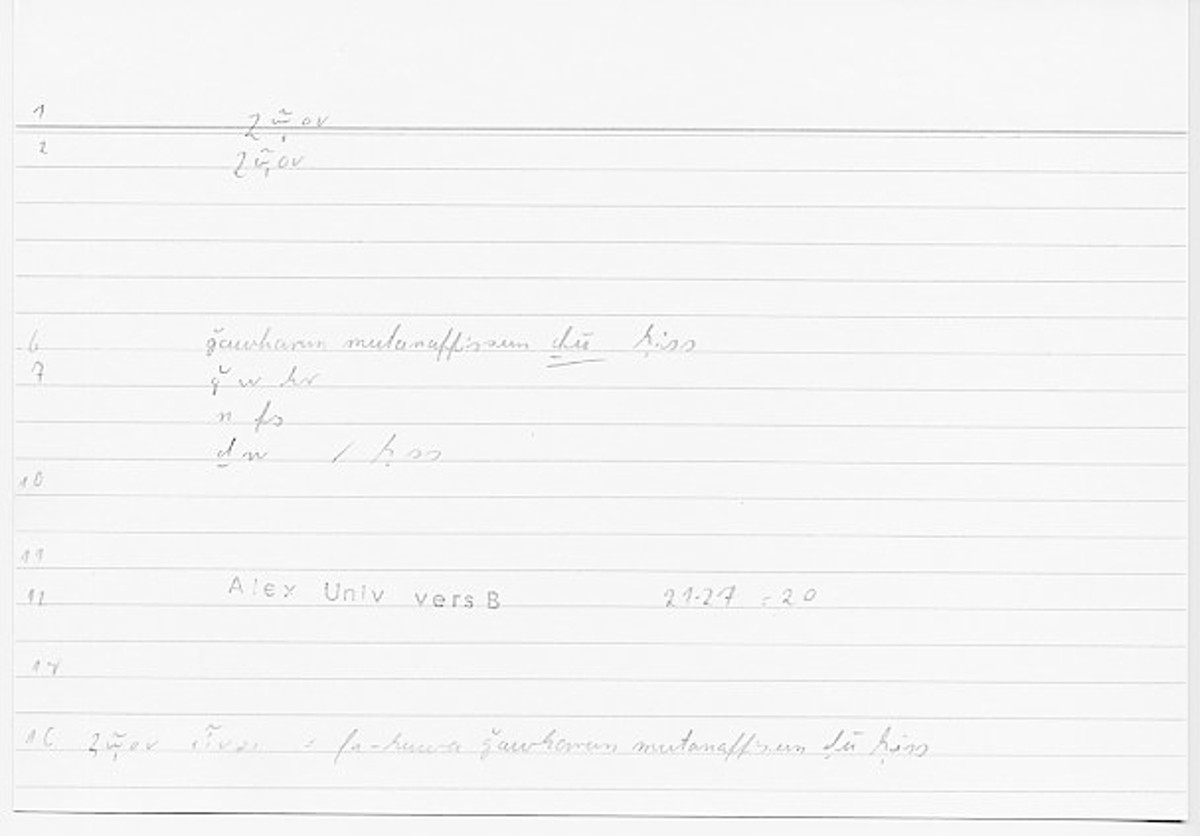 1 ζῷον
2 ζῷον
6 ǧawharun mutanaffisun ḏū ḥiss
7 ǧwhr
nfs
ḏw / ḥss
10
11
12 Alex Univ vers B 21.27 = 20
14
16 ζῷον εἶναι = fa-huwa ǧawharun mutanaffisun ḏū ḥiss